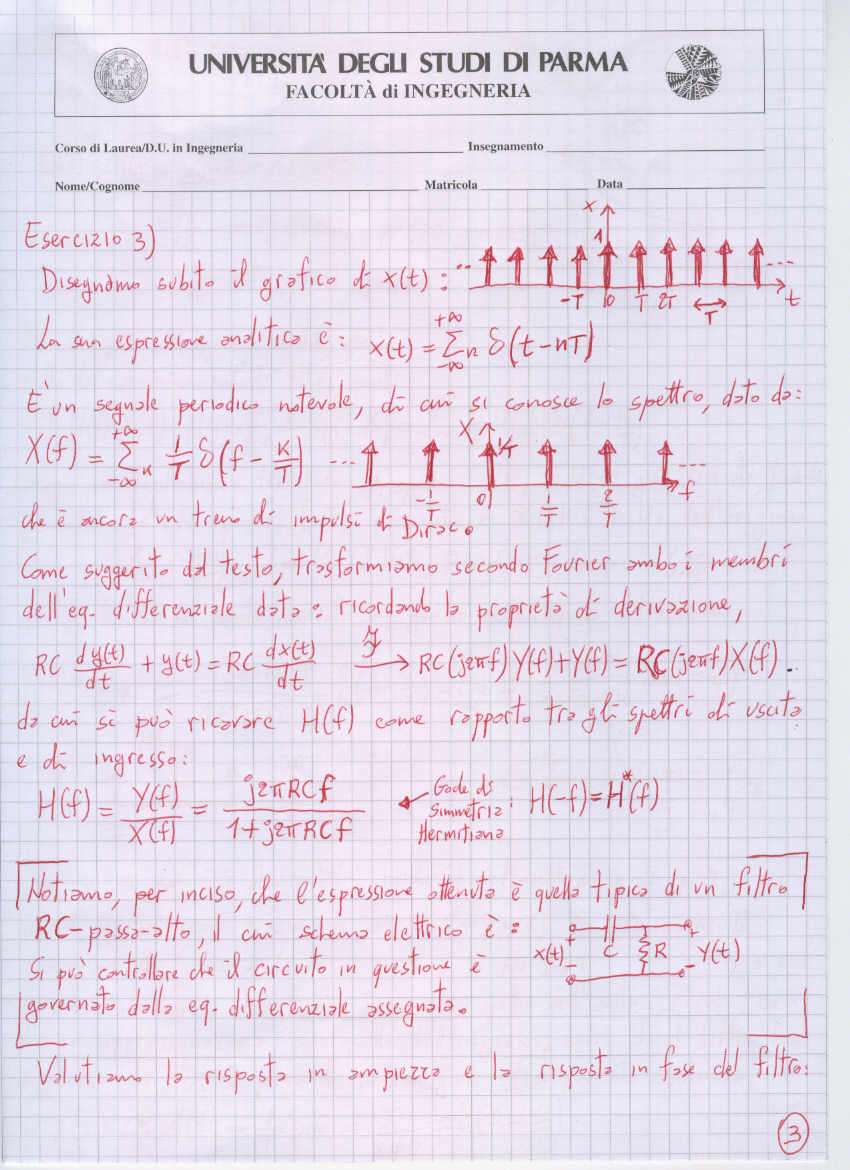 UNIVERSITA' DEGLI STUDI DI PARMA
FACOLTÀ di INGEGNERIA
Corso di Laurea/D.U. in Ingegneria Insegnamento
Nome/Cognome Matricola Data
Esercizio 3)
Disegnamo subito il grafico di x(t) : x 1 -T 0 T 2T T t
La sua espressione analitica è: x(t) = Σ_n δ(t-nT) +∞ -∞
E' un segnale periodico notevole, di cui si conosce lo spettro, dato da:
X(f) = Σ_k 1/T δ(f - K/T) +∞ -∞ ... X 1/T -1/T 0 1/T 2/T f ...
che è ancora un treno di impulsi di Dirac.
Come suggerito dal testo, trasformiamo secondo Fourier ambo i membri
dell'eq. differenziale data: ricordando la proprietà di derivazione,
RC dy(t)/dt + y(t) = RC dx(t)/dt ℱ→ RC(j2πf)Y(f)+Y(f) = RC(j2πf)X(f).
da cui si può ricavare H(f) come rapporto tra gli spettri di uscita
e di ingresso:
H(f) = Y(f)/X(f) = j2πRCf / 1+j2πRCf ← Gode di Simmetria Hermitiana : H(-f)=H*(f)
Notiamo, per inciso, che l'espressione ottenuta è quella tipica di un filtro
RC-passa-alto, il cui schema elettrico è : x(t) + - C R + - Y(t)
Si può controllare che il circuito in questione è
governato dalla eq. differenziale assegnata.
Valutiamo la risposta in ampiezza e la risposta in fase del filtro:
3